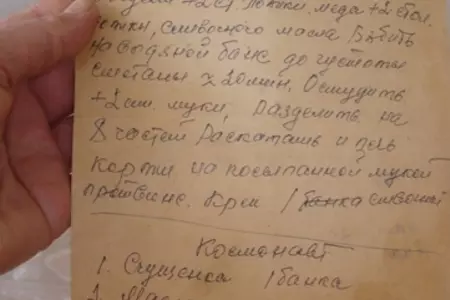 +2 ст. ложки меда +2 стол.
ложки, сливочного масла Взбить
на водяной бане до густоты
сметаны ≈ 20 мин. Остудить
+2 ст. муки, разделить на
8 частей раскатать и печь
коржи на посыпанной мукой
противне. Крем 1 банка
Космонавт
1. Сгущенка 1 банка